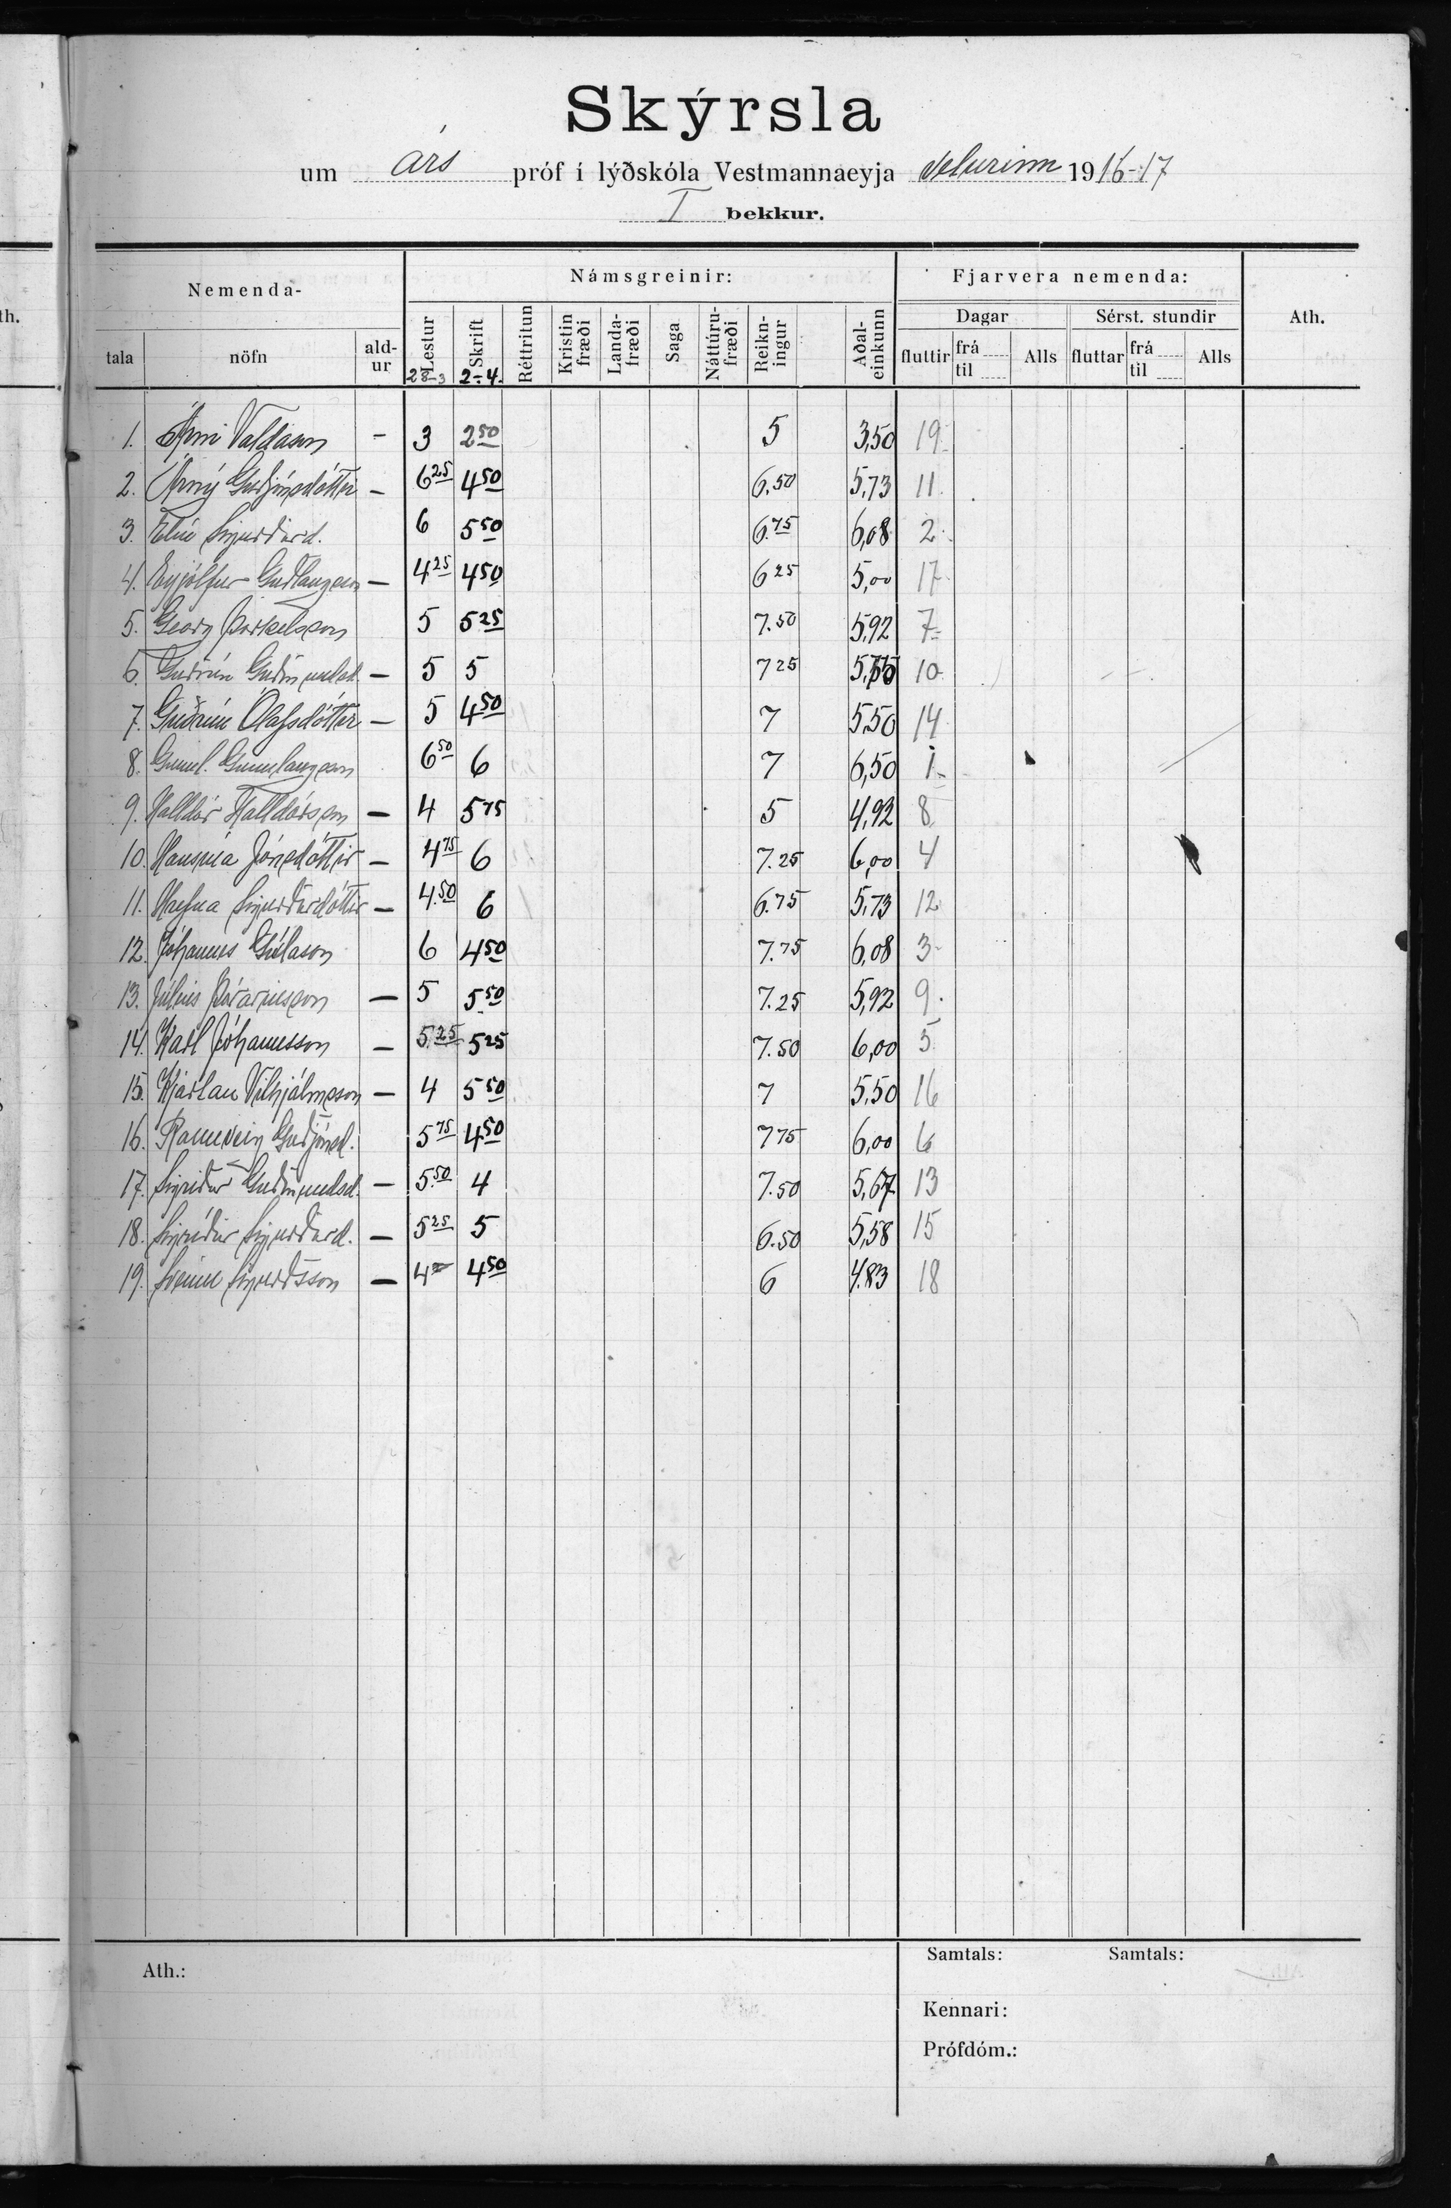 Skýrsla
um árs próf í lýðskóla Vestmannaeyja veturinn 1916-17
I bekkur.
Nemenda- Námsgreinir: Fjarvera nemenda:
th. Dagar Sérst. stundir Ath.
tala nöfn ald-ur Lestur Skrift Réttritun Kristin fræði Landa-fræði Saga Náttúru-fræði Reikn-ingur Aðal-einkunn fluttir frá til Alls fluttar frá til Alls
28-3 2-4.
1. Árni Valdason - 3 2 50 5 3,50 19
2. Árný Guðjónsdóttir - 6 25 4 50 6.50 5,73 11
3. Elín Sigurðard. 6 5 50 6.75 6,08 2
4. Eyjólfur Guðlaugsson - 4 25 4 50 6 25 5,00 17
5. Georg Þorkelsson 5 5 25 7.50 5,92 7
6. Guðrún Guðmundsd. - 5 5 7 25 10
7. Guðrún Ólafsdóttir - 5 4 50 7 5,50 14
8. Gunnl. Gunnlaugsson 6 50 6 7 6,50 1
9. Halldór Halldórsson - 4 5 75 5 4,92 8
10. Hansína Jónsdóttir - 4 75 6 7.25 6,00 4
11. Hrefna Sigurðardóttir - 4.50 6 6.75 5,73 12
12. Jóhannes Gíslason 6 4 50 7.75 6,08 3
13. Júlíus Þórarinsson - 5 5 50 7.25 5,92 9
14. Karl Jóhannsson - 5.25 5 25 7.50 6,00 5
15. Kjartan Vilhjálmsson - 4 5 50 7 5,50 16
16. Rannveig Guðjónsd. 5 75 4 50 7 75 6,00 6
17. Sigríður Guðmundsd. - 5.50 4 7.50 5,67 13
18. Sigríður Sigurðard. - 5 25 5 6.50 5,58 15
19. Sveinn Sigurðsson - 4 4 50 6 4.83 18
Ath.: Samtals: Samtals:
Kennari:
Prófdóm.: